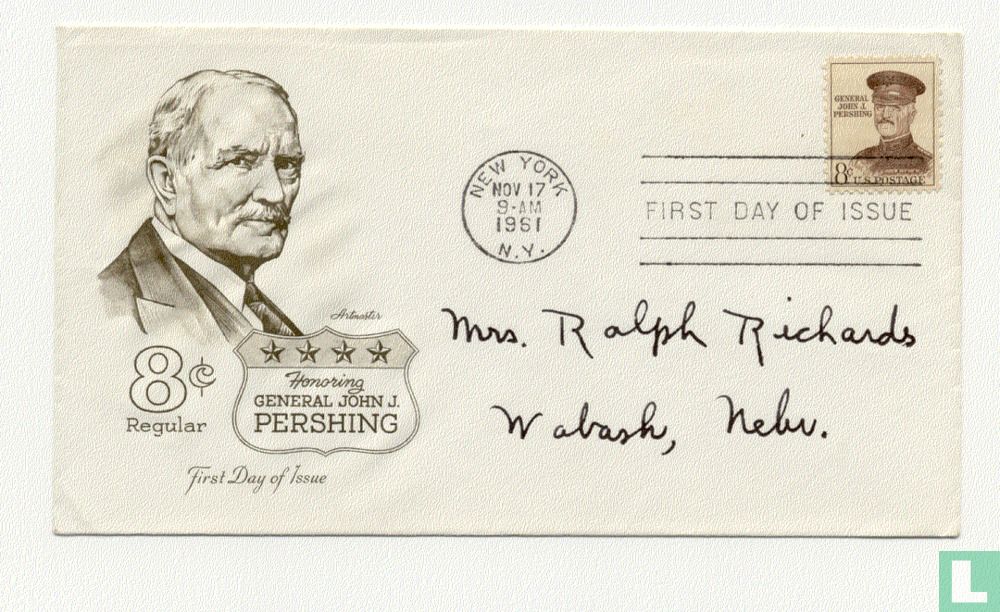 GENERAL
JOHN J.
PERSHING
8¢ U.S. POSTAGE
NEW YORK
NOV 17
9-AM
1961
N.Y.
FIRST DAY OF ISSUE
Artmaster
Mrs. Ralph Richards
Wabash, Nebr.
8¢
Regular
Honoring
GENERAL JOHN J.
PERSHING
First Day of Issue
L